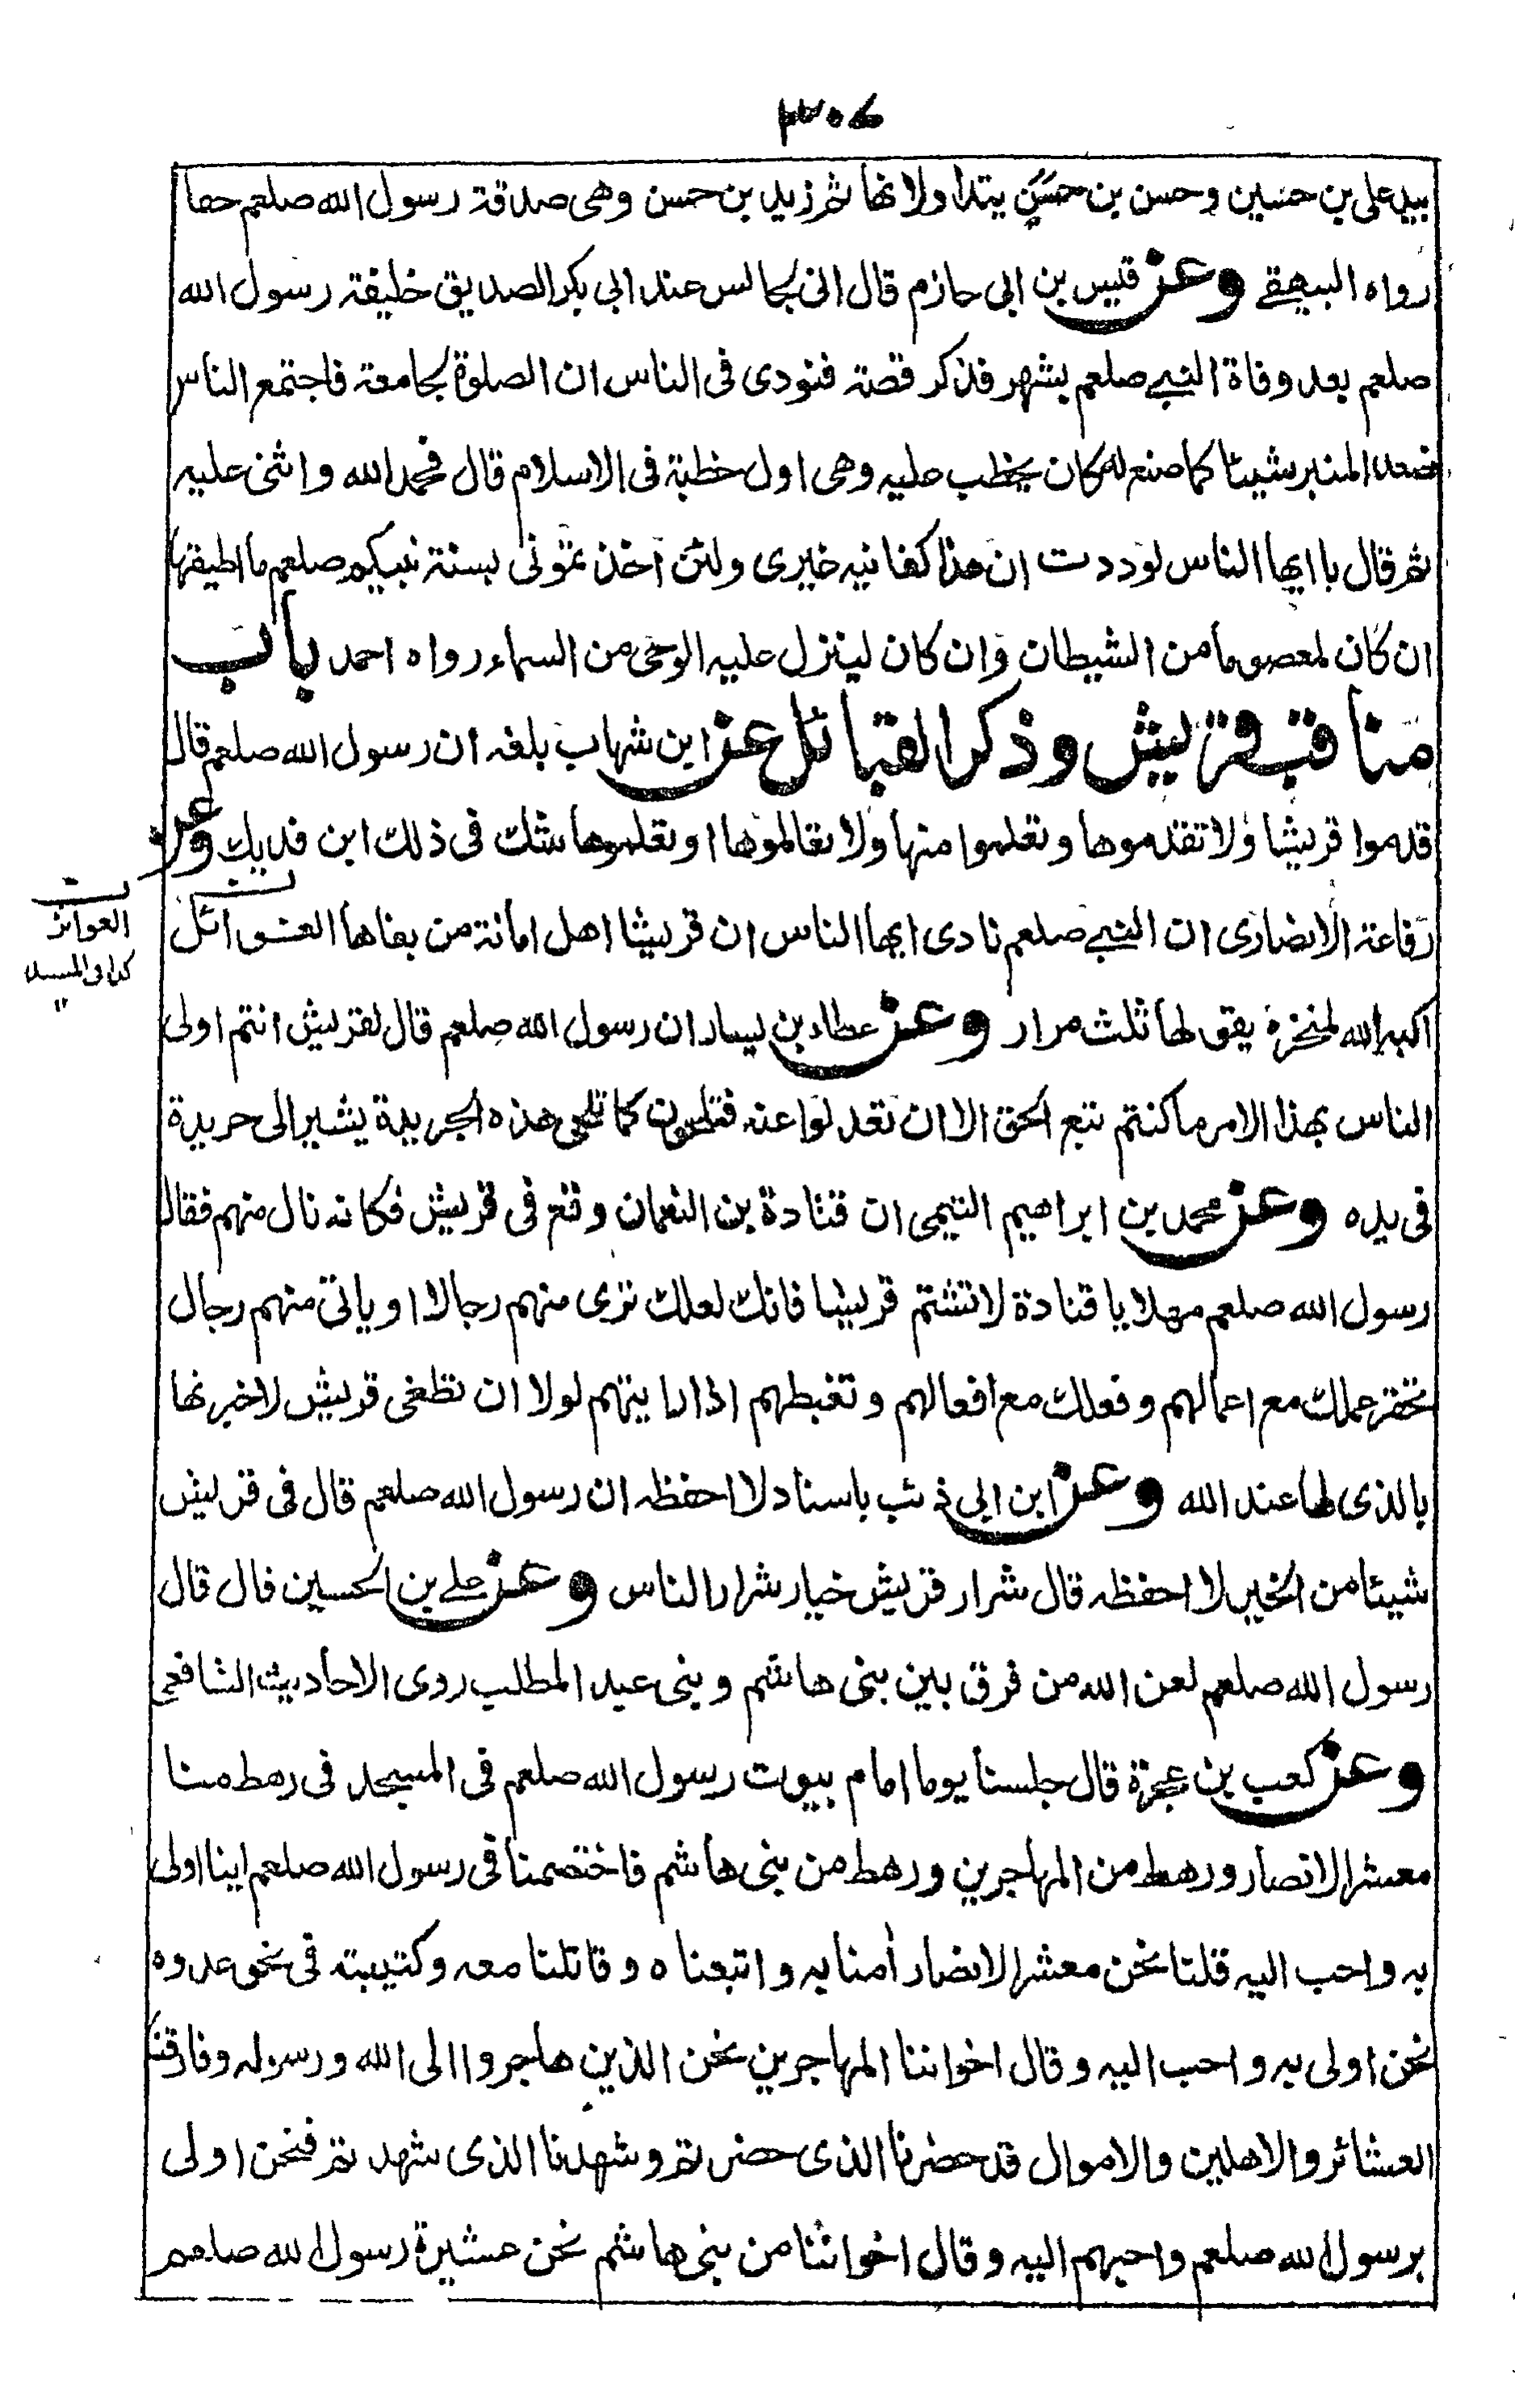 ٣٠٤
بيد علي بن حسين وحسن بن حسن يتداولانها ثم زيد بن حسن وهى صدقة رسول الله صلعم حقا
رواه البيهقے وعن قيس بن ابى حازم قال انى لجالس عند ابى بكر الصديق خليفة رسول الله
صلعم بعد وفاة النبے صلعم بشهر فذكر قصة فنودى فى الناس ان الصلوة لجامعة فاجتمع الناس
فصعد المنبر شيئا كما صنع له كان يخطب عليه وهى اول خطبة فى الاسلام قال فحمد الله واثنى عليه
ثم قال يا ايها الناس لوددت ان هذا كفانيه غيرى ولئن اخذتمونى بسنة نبيكم صلعم ما اطيقها
ان كان لمعصوما من الشيطان وان كان لينزل عليه الوحى من السماء رواه احمد باب
مناقب قريش وذكر القبائل عن ابن شهاب بلغه ان رسول الله صلعم قال
قدموا قريشا ولا تقدموها وتعلموا منها ولا تعالموها او تعلموها شك فى ذلك ابن فديك وعن
رفاعة الانصارى ان النبے صلعم نادى ايها الناس ان قريشا اهل امانة من بغاها العواثل
العواثر
كذا فى المسند
اكبه الله لمنخره يقولها ثلث مرار وعن عطاء بن يسار ان رسول الله صلعم قال لقريش انتم اولى
الناس بهذا الامر ما كنتم تتبع الحق الا ان تعدلوا عنه فتلحون كما تلحى هذه الجريدة يشير الى جريدة
فى يده وعن محمد بن ابراهيم التيمى ان قتادة بن النعمان وقع فى قريش فكانه نال منهم فقال
رسول الله صلعم مهلا يا قتادة لا تشتم قريشا فانك لعلك ترى منهم رجالا او ياتى منهم رجال
تحقر عملك مع اعمالهم وفعلك مع افعالهم وتغبطهم اذا رايتهم لولا ان تطغى قريش لاخبرتها
بالذى لها عند الله وعن ابن ابى ذئب باسناد لا احفظه ان رسول الله صلعم قال فى قريش
شيئا من الخير لا احفظه قال شرار قريش خيار شرار الناس وعن علے بن الحسين قال قال
رسول الله صلعم لعن الله من فرق بين بنى هاشم وبنى عبد المطلب روى الاحاديث الشافعى
وعن كعب بن عجرة قال جلسنا يوما امام بيوت رسول الله صلعم فى المسجد فى رهط منا
معشر الانصار ورهط من المهاجرين ورهط من بنى هاشم فاختصمنا فى رسول الله صلعم اينا اولى
به واحب اليه قلنا نحن معشر الانصار أمنا به واتبعناه وقاتلنا معه وكتيبته فى نحو عدوه
نحن اولى به واحب اليه وقال اخواننا المهاجرين نحن الذين هاجروا الى الله ورسوله وفارقنا
العشائر والاهلين والاموال قد حضرنا الذى حضرتم وشهدنا الذى شهدتم فنحن اولى
برسول الله صلعم واحبهم اليه وقال اخواننا من بنى هاشم نحن عشيرة رسول الله صلعم